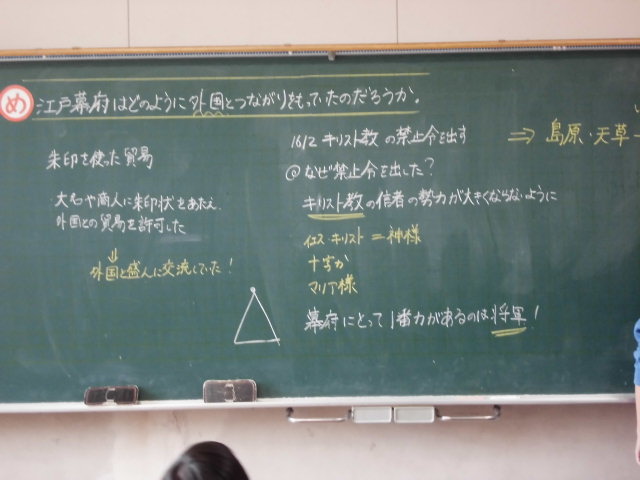 め 江戸幕府はどのように外国とつながりをもっていたのだろうか。
朱印を使った貿易
大名や商人に朱印状をあたえ
外国との貿易を許可した
⇓
外国と盛んに交流していた!
1612 キリスト教の禁止令を出す
◎なぜ禁止令を出した?
キリスト教の信者の勢力が大きくならないように
イエスキリスト=神様
十字か
マリア様
幕府にとって1番力があるのは将軍!
⇒ 島原・天草